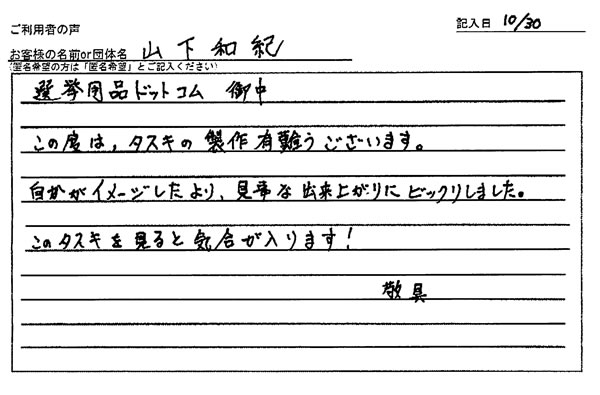 ご利用者の声
記入日 10/30
お客様の名前or団体名 山下和紀
(匿名希望の方は「匿名希望」とご記入ください)
選挙用品ドットコム 御中
この度は、タスキの製作有難うございます。
自分がイメージしたより、見事な出来上がりにビックリしました。
このタスキを見ると気合が入ります!
敬具